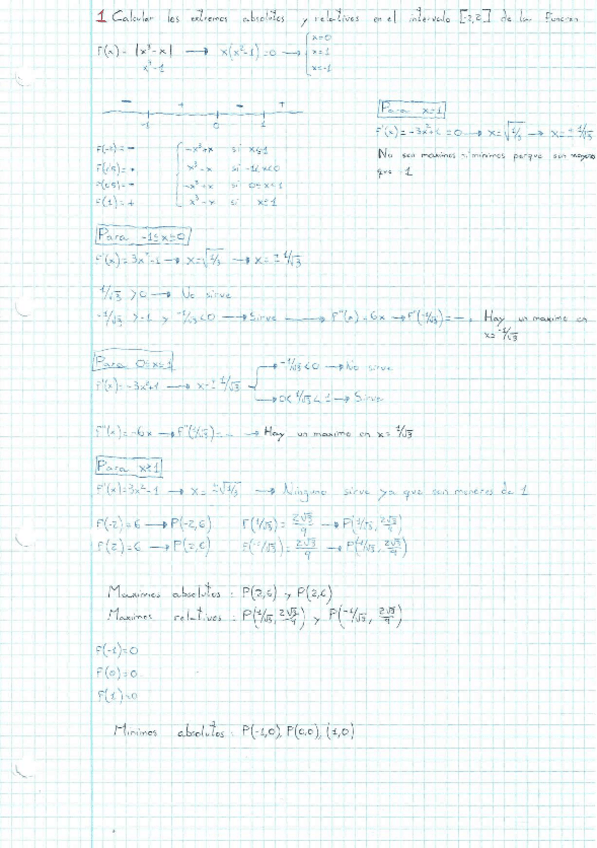 1 Calcular los extremos absolutos y relativos en el intervalo [-2,2] de la Funcion
F(x) = |x³-x| → x(x²-1)=0 → x=0
x=1
x=-1
x²-1
- + - +
-1 0 1
F(-2)= -
F(-0'5)= +
F(0'5)= -
F(2)= +
-x³+x si x≤-1
x³-x si -1<x<0
-x³+x si 0≤x<1
x³-x si x≥1
Para x≤-1
F'(x)=-3x²+1=0 → x=√1/3 → x=±1/√3
No son maximos ni minimos porque son mayores
que -1
Para -1≤x≤0
F'(x)=3x²-1 → x=√1/3 → x=±1/√3
1/√3 >0 → No sirve
-1/√3 >-1 y -1/√3<0 → Sirve → F''(x)=6x → F''(-1/√3)= - . Hay un maximo en
x=-1/√3
Para 0≤x≤1
F'(x)=-3x²+1 → x=±1/√3
-1/√3<0 → No sirve
0<1/√3<1 → Sirve
F''(x)=-6x → F''(1/√3)= - → Hay un maximo en x=1/√3
Para x≥1
F'(x)=3x²-1 → x=±√1/3 → Ninguno sirve ya que son menores de 1
F(-2)=6 → P(-2,6) F(1/√3)=2√3/9 → P(1/√3, 2√3/9)
F(2)=6 → P(2,6) F(-1/√3)=2√3/9 → P(-1/√3, 2√3/9)
Maximos absolutos: P(2,6) y P(2,6)
Maximos relativos: P(1/√3, 2√3/9) y P(-1/√3, 2√3/9)
F(-1)=0
F(0)=0
F(1)=0
Minimos absolutos: P(-1,0), P(0,0), (1,0)